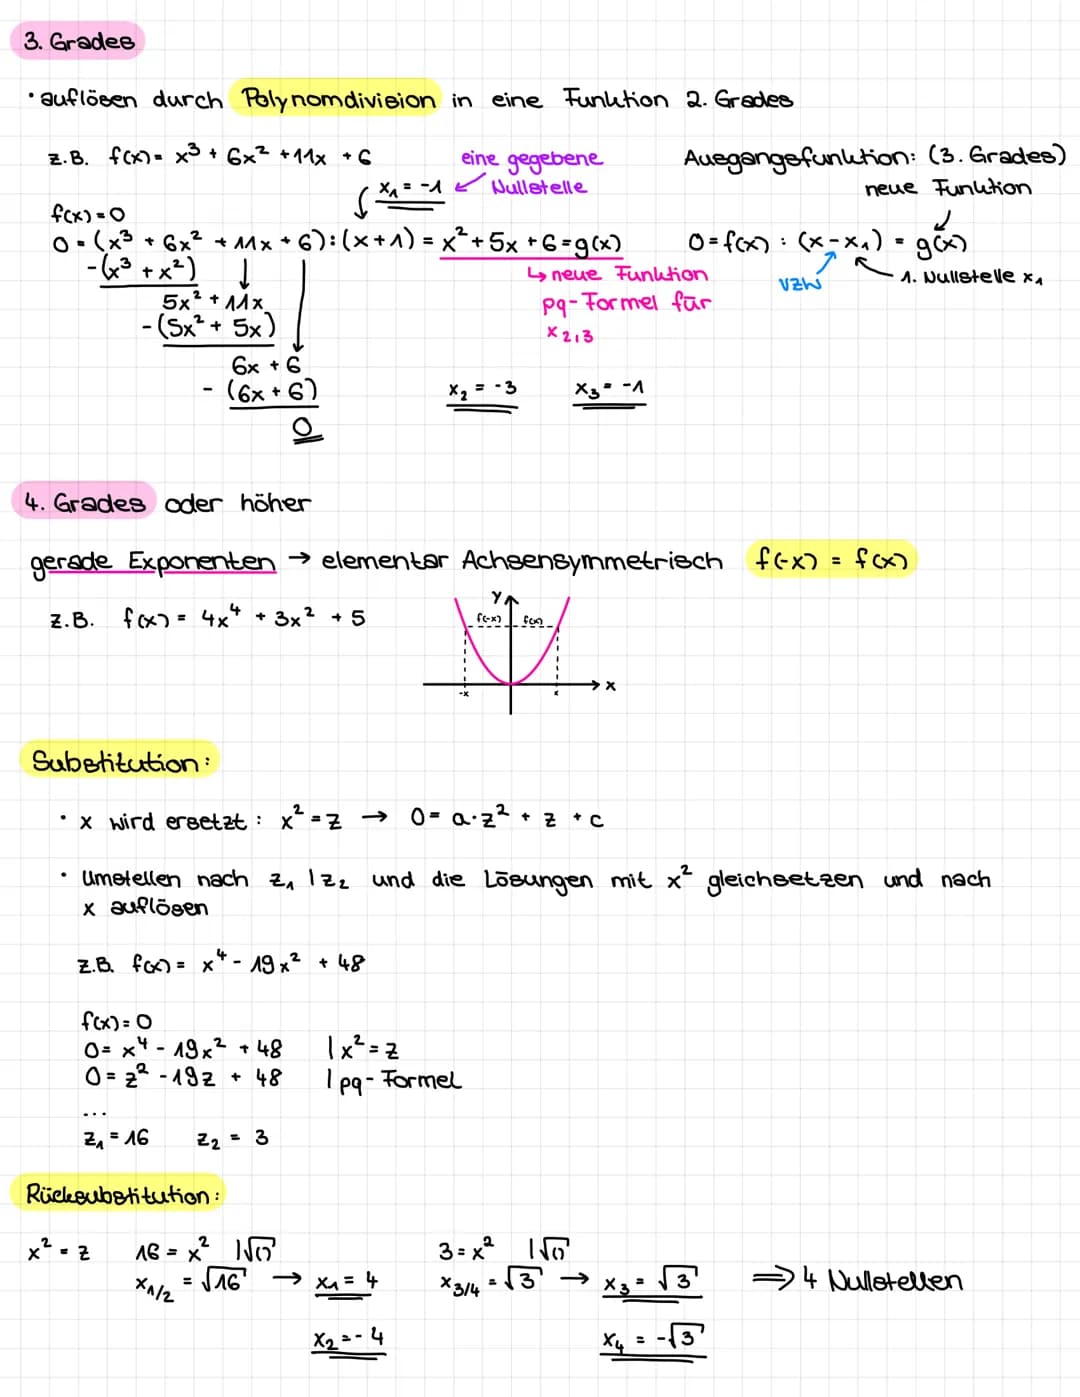 3. Grades
• auflösen durch Polynomdivision in eine Funktion 2. Grades
z.B. f(x) = x³ + 6x² + 11x + 6
eine gegebene
Nullstelle
x₁ = -1
Ausgangsfunktion: (3. Grades)
neue Funktion
f(x) = 0
0 = (x³ + 6x² + 11x + 6) : (x + 1) = x² + 5x + 6 = g(x)
0 = f(x) : (x - x₁) = g(x)
-(x³ + x²)
↳ neue Funktion
VZW
1. Nullstelle x₁
5x² + 11x
pq-Formel für
-(5x² + 5x)
x₂,₃
6x + 6
- (6x + 6)
x₂ = -3 x₃ = -1
0
4. Grades oder höher
gerade Exponenten → elementar Achsensymmetrisch f(-x) = f(x)
z.B. f(x) = 4x⁴ + 3x² + 5
y
f(-x) f(x)
x
-x x
Substitution:
• x wird ersetzt: x² = z → 0 = a·z² + z + c
• Umstellen nach z₁ | z₂ und die Lösungen mit x² gleichsetzen und nach
x auflösen
z.B. f(x) = x⁴ - 19x² + 48
f(x) = 0
0 = x⁴ - 19x² + 48 | x² = z
0 = z² - 19z + 48 | pq-Formel
...
z₁ = 16 z₂ = 3
Rücksubstitution:
x² = z 16 = x² |√() 3 = x² |√()
x₁/₂ = √16 → x₁ = 4 x₃/₄ = √3 → x₃ = √3 ⇒ 4 Nullstellen
x₂ = -4 x₄ = -√3